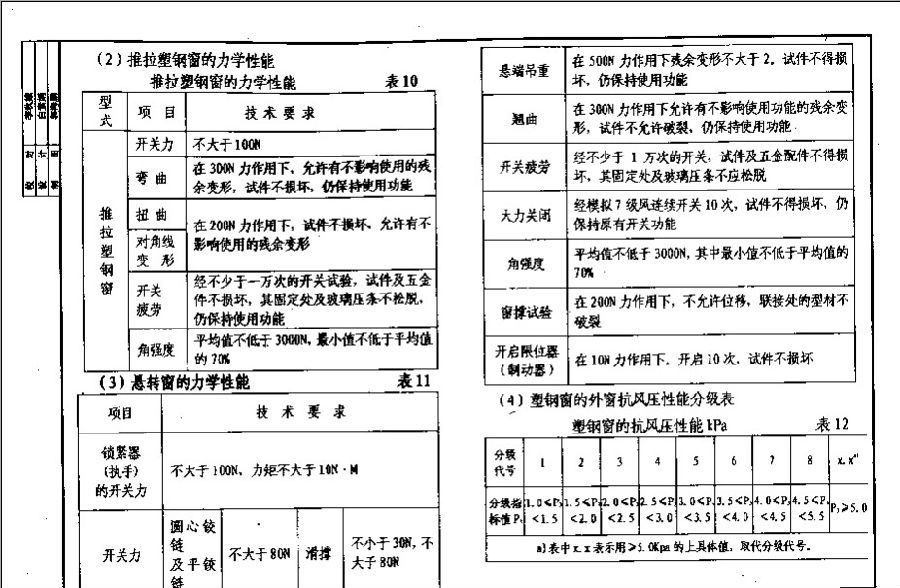 (2)推拉塑钢窗的力学性能
推拉塑钢窗的力学性能 表10
型式 项 目 技 术 要 求
推拉塑钢窗
开关力 不大于100N
弯 曲 在300N力作用下、允许有不影响使用的残
余变形，试件不损坏、仍保持使用功能
扭 曲
对角线
变 形
在200N力作用下，试件不损坏、允许有不
影响使用的残余变形
开关
疲劳
经不少于一万次的开关试验，试件及五金
件不损坏，其固定处及玻璃压条不松脱，
仍保持使用功能
角强度 平均值不低于3000N，最小值不低于平均值
的70%
(3)悬转窗的力学性能 表11
项目 技 术 要 求
锁紧器
(执手)
的开关力
不大于100N、力矩不大于10N·M
开关力
圆心铰
链
及平铰
链
不大于80N 滑撑 不小于30N，不
大于80N
悬端吊重 在500N力作用下残余变形不大于2，试件不得损
坏、仍保持使用功能
翘曲 在300N力作用下允许有不影响使用功能的残余变
形，试件不允许破裂、仍保持使用功能
开关疲劳 经不少于1万次的开关，试件及五金配件不得损
坏、其固定处及玻璃压条不应松脱
大力关闭 经模拟7级风连续开关10次，试件不得损坏、仍
保持原有开关功能
角强度 平均值不低于3000N，其中最小值不低于平均值的
70%
窗撑试验 在200N力作用下，不允许位移，联接处的型材不
破裂
开启限位器
(制动器)
在10N力作用下、开启10次、试件不损坏
(4)塑钢窗的外窗抗风压性能分级表
塑钢窗的抗风压性能kPa 表12
分级
代号
1 2 3 4 5 6 7 8 x.x
分级指
标值P₃
1.0≤P₃
<1.5
1.5≤P₃
<2.0
2.0≤P₃
<2.5
2.5≤P₃
<3.0
3.0≤P₃
<3.5
3.5≤P₃
<4.0
4.0≤P₃
<4.5
4.5≤P₃
<5.5
P₃≥5.0
a)表中x.x表示用≥5.0Kpa的上具体值，取代分级代号。